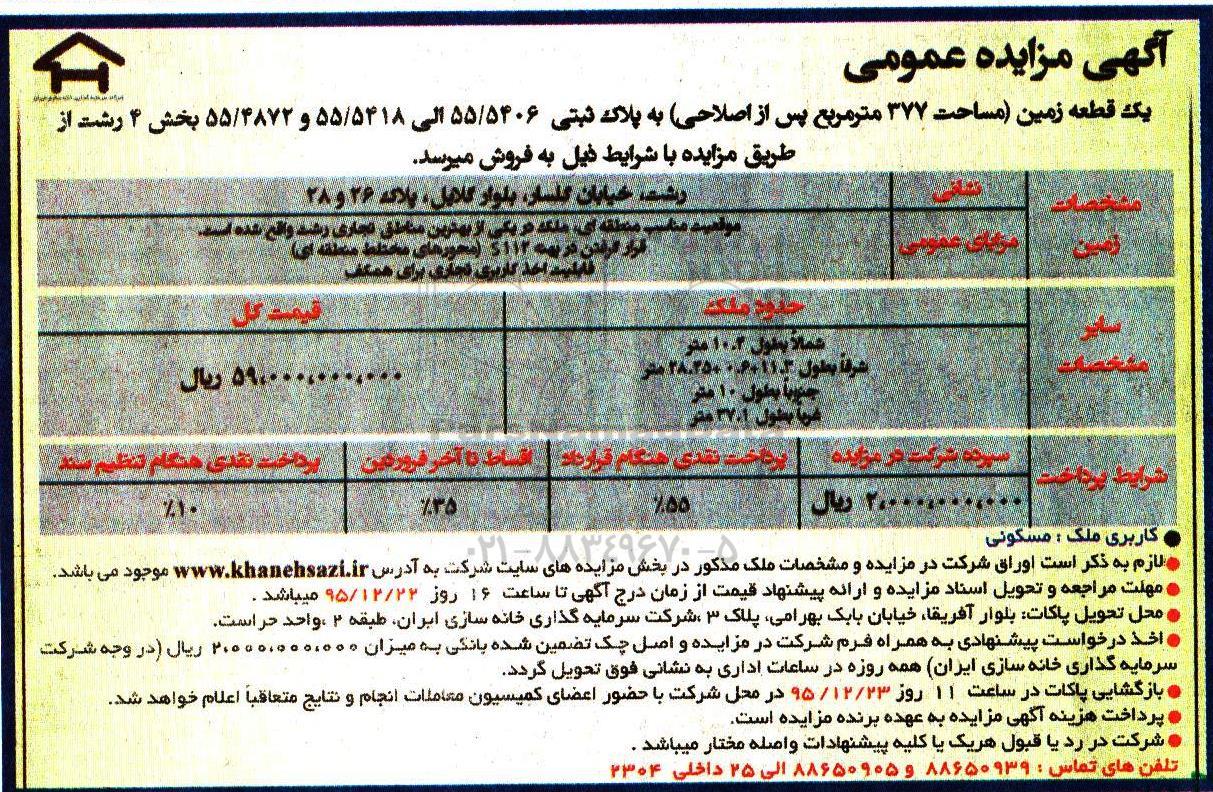 آگهی مزایده عمومی
یک قطعه زمین (مساحت ۳۷۷ مترمربع پس از اصلاحی) به پلاک ثبتی ۵۵/۵۴۰۶ الی ۵۵/۵۴۱۸ و ۵۵/۴۸۷۲ بخش ۴ رشت از
طریق مزایده با شرایط ذیل به فروش میرسد.
مشخصات زمین
نشانی
رشت، خیابان گلسار، بلوار گلایل، پلاک ۲۶ و ۲۸
مزایای عمومی
موقعیت مناسب منطقه ای، ملک در یکی از بهترین مناطق تجاری رشت واقع شده است.
قرار گرفتن در پهنه S۱۱۲ (محورهای مختلط منطقه ای)
قابلیت اخذ کاربری تجاری برای همکف
سایر مشخصات
حدود ملک
قیمت کل
شمالاً بطول ۱۰.۲ متر
شرقاً بطول ۱۱.۳+۰.۶+۲۸.۲۵ متر
جنوباً بطول ۱۰ متر
غرباً بطول ۳۷.۱ متر
۵۹،۰۰۰،۰۰۰،۰۰۰ ریال
شرایط پرداخت
سپرده شرکت در مزایده
پرداخت نقدی هنگام قرارداد
اقساط تا آخر فروردین
پرداخت نقدی هنگام تنظیم سند
۲،۰۰۰،۰۰۰،۰۰۰ ریال
٪۵۵
٪۳۵
٪۱۰
ParsNamadData
۰۲۱-۸۸۳۴۹۶۷۰-۵
● کاربری ملک : مسکونی
● لازم به ذکر است اوراق شرکت در مزایده و مشخصات ملک مذکور در بخش مزایده های سایت شرکت به آدرس www.khanehsazi.ir موجود می باشد.
● مهلت مراجعه و تحویل اسناد مزایده و ارائه پیشنهاد قیمت از زمان درج آگهی تا ساعت ۱۶ روز ۹۵/۱۲/۲۲ میباشد .
● محل تحویل پاکات: بلوار آفریقا، خیابان بابک بهرامی، پلاک ۳ ،شرکت سرمایه گذاری خانه سازی ایران، طبقه ۲ ،واحد حراست.
● اخذ درخواست پیشنهادی به همراه فرم شرکت در مزایده و اصل چک تضمین شده بانکی به میزان ۲،۰۰۰،۰۰۰،۰۰۰ ریال (در وجه شرکت
سرمایه گذاری خانه سازی ایران) همه روزه در ساعات اداری به نشانی فوق تحویل گردد.
● بازگشایی پاکات در ساعت ۱۱ روز ۹۵/۱۲/۲۳ در محل شرکت با حضور اعضای کمیسیون معاملات انجام و نتایج متعاقباً اعلام خواهد شد.
● پرداخت هزینه آگهی مزایده به عهده برنده مزایده است.
● شرکت در رد یا قبول هریک یا کلیه پیشنهادات واصله مختار میباشد .
تلفن های تماس : ۸۸۶۵۰۹۳۹ و ۸۸۶۵۰۹۰۵ الی ۲۵ داخلی ۲۳۰۴